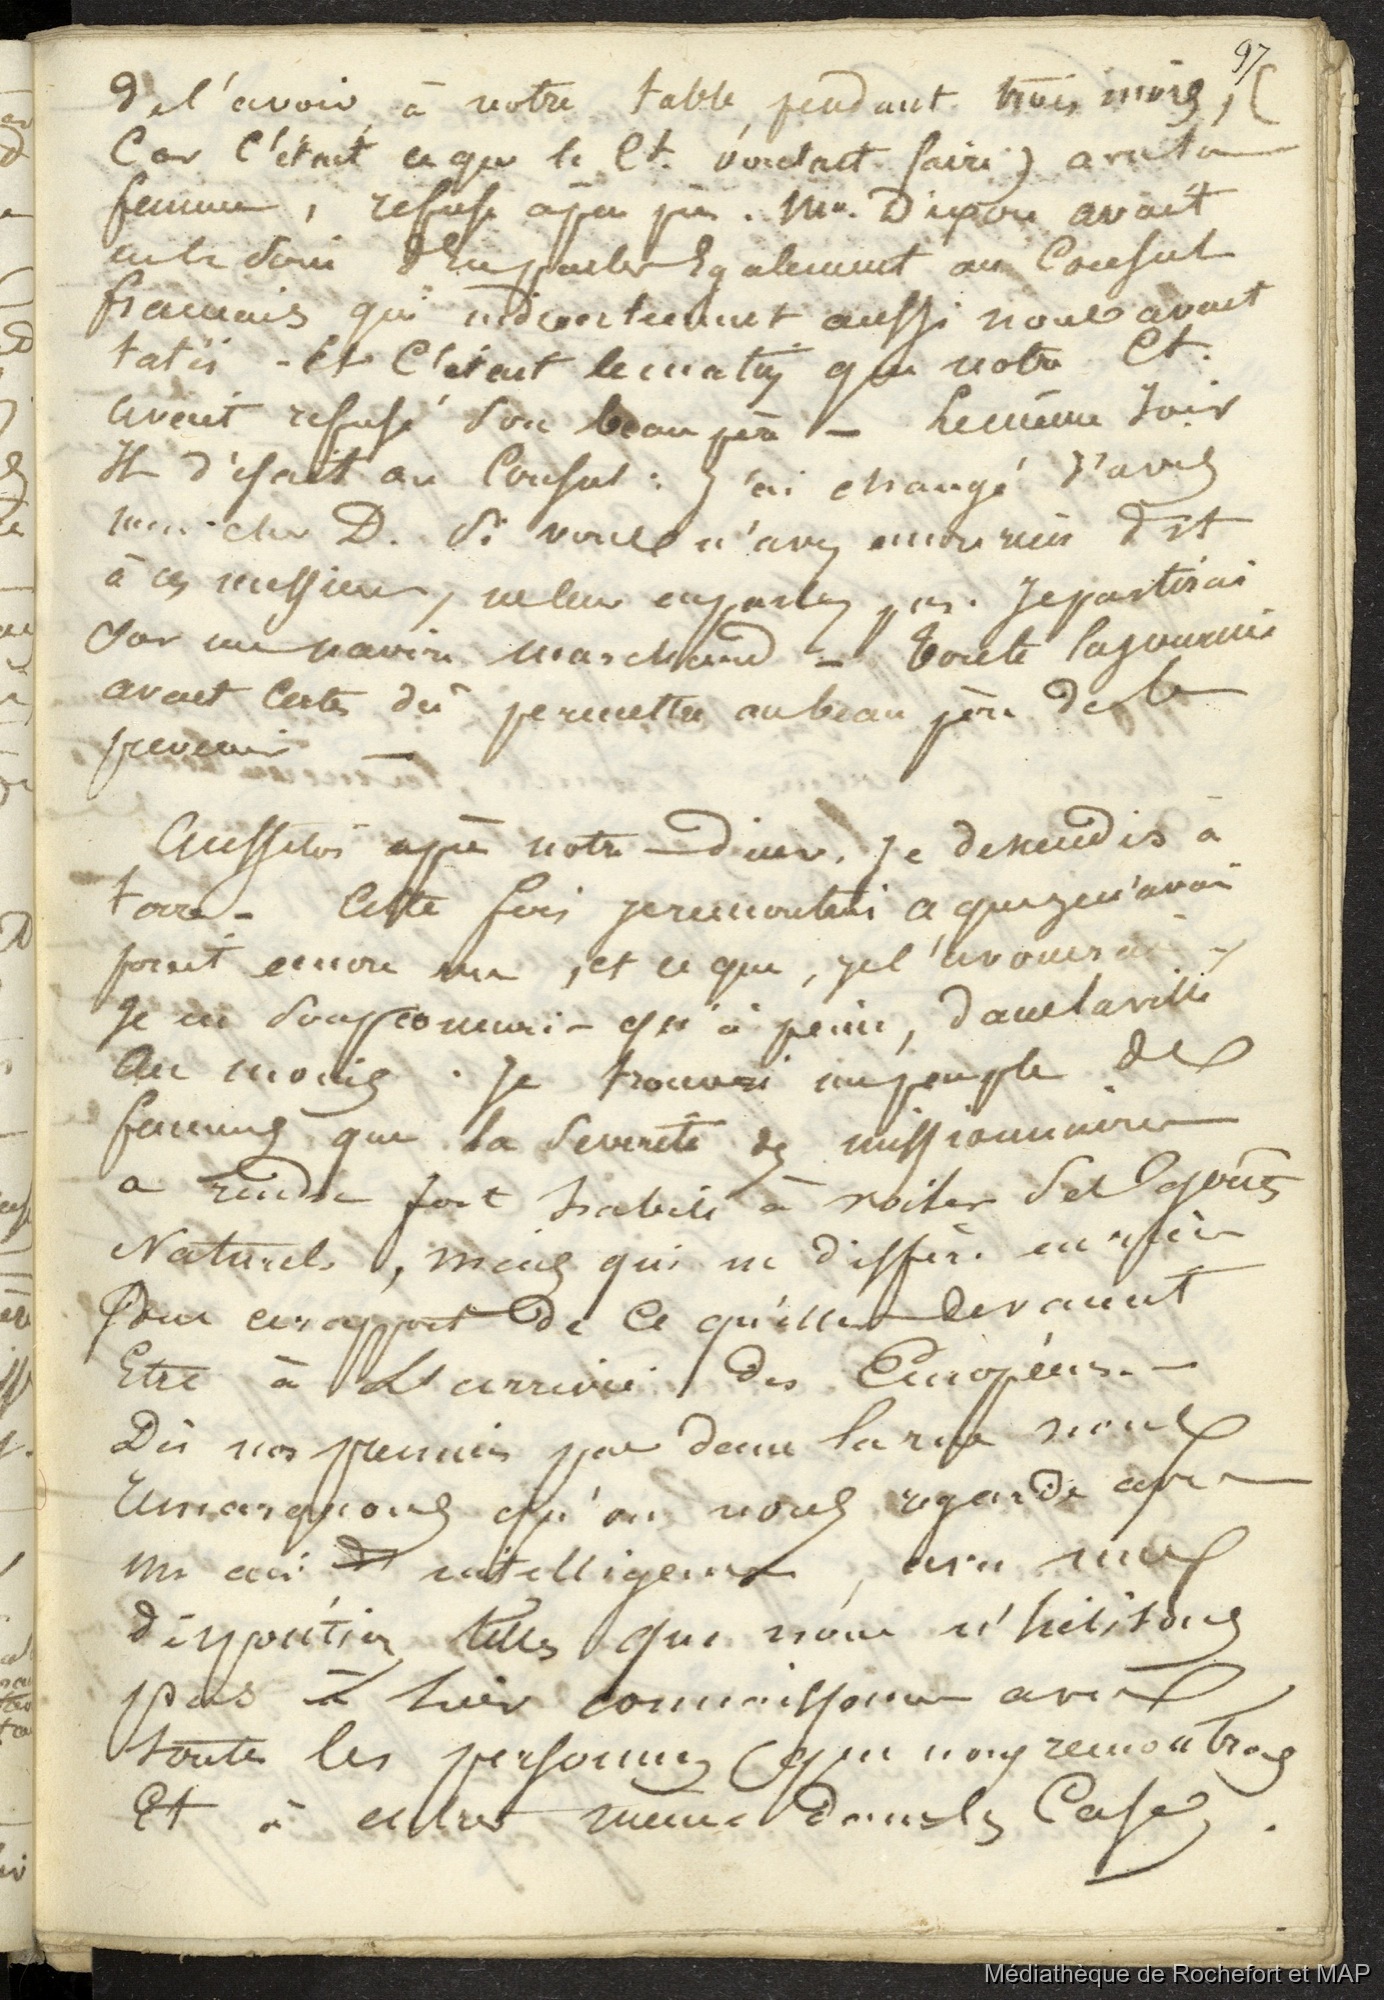 97
de l'avoir à notre table pendant trois mois, (
Car c'était ce que le Ct. voulait faire) avec sa
femme, refusé à peu près. Mr. Dixon avait
eu le soin d'en parler également au Consul
français qui indirectement aussi nous avait
tatés - et c'était le matin que notre Ct.
avait refusé son beau père - Le même soir
Il disait au Consul : J'ai changé d'avis
mon cher D. si vous n'avez encore rien dit
à ces messieurs, ne leur en parlez pas. Je partirai
sur un navire marchand - Toute la journée
avait certes dû permettre au beau père de le
prevenir -
Aussitôt après notre diner, je descendis à
terre - Cette fois je rencontrai ce que je n'avais
point encore vu, et ce que, je l'avouerai,
je ne soupçonnais qu'à peine, dans la ville
au moins. Je trouvai un peuple de
femmes que la séverité des missionnaires
a rendu fort habile à voiler ses gouts
Naturels, mais qui ne diffère en rien
sous ce rapport de ce qu'elles devaient
Etre à L'arrivée des Européens. -
Dès nos premiers pas dans la rue nous
remarquons qu'on nous regarde avec
un air d' intelligence, avec une
disposition telles que nous n'hésitons
pas à lier connaissance avec
toutes les personnes que nous rencontrons
Et à entrer même dans les Cases.
Médiathèque de Rochefort et MAP